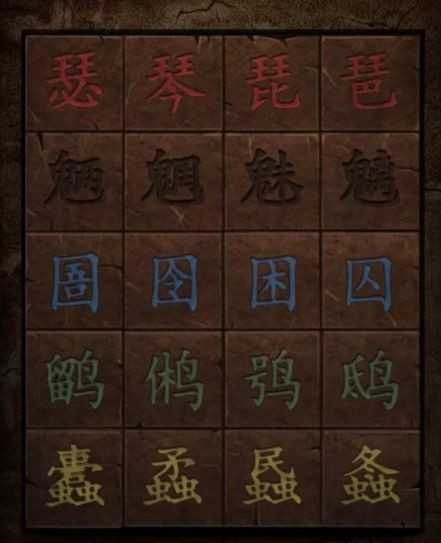 瑟琴琵琶
魉魍魅魑
圄囹困囚
鹠鸺鸮鸱
蠹蟊蟁螽